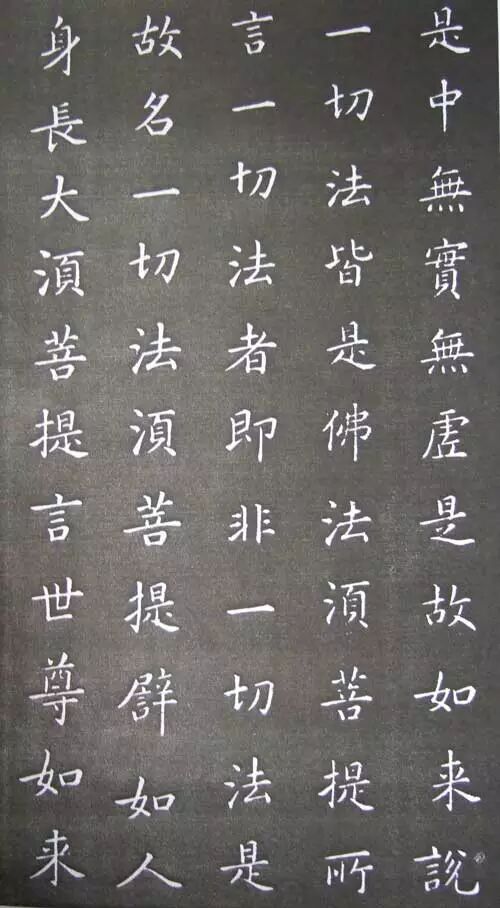 是中無實無虛是故如来說
一切法皆是佛法湏菩提所
言一切法者即非一切法是
故名一切法湏菩提譬如人
身長大湏菩提言世尊如来